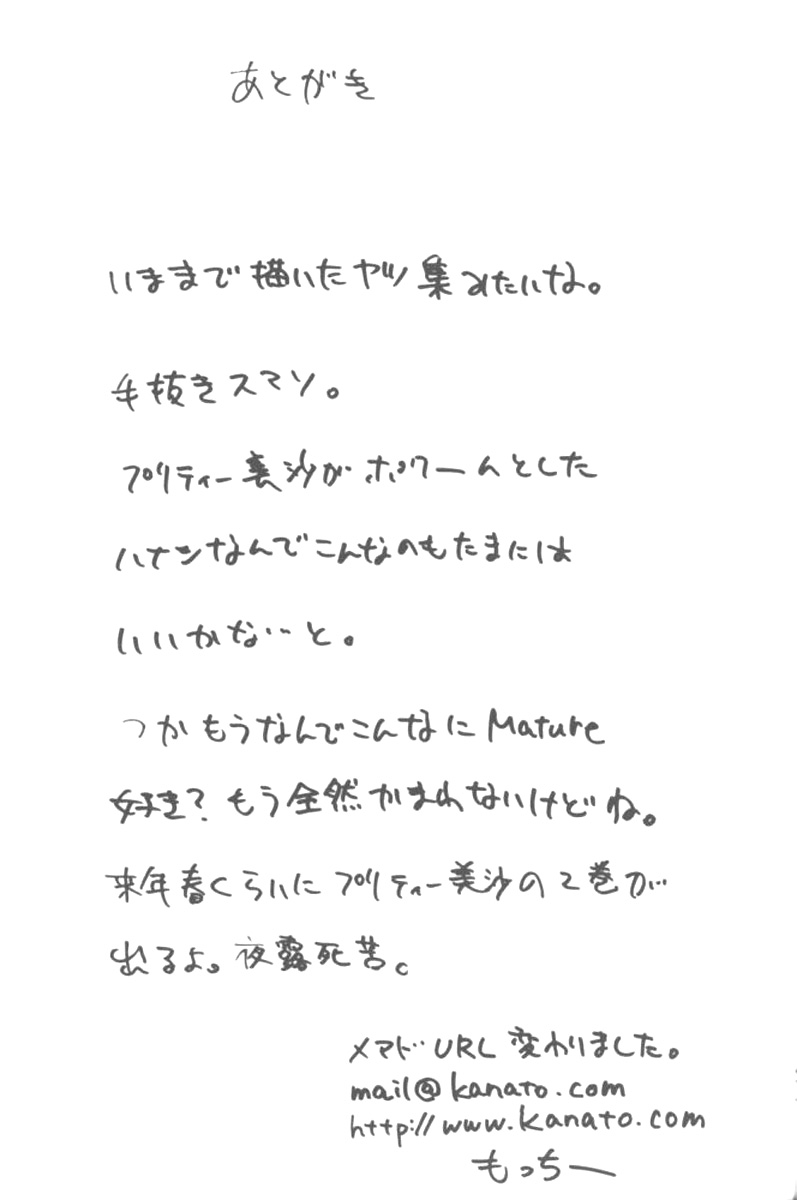 あとがき
いままで描いたヤツ集みたいな。
手抜きスマソ。
プリティー美沙がポワーんとした
ハナシなんでこんなのもたまには
いいかな…と。
つかもうなんでこんなにMature
好き？もう全然かまわないけどね。
来年春くらいにプリティー美沙の2巻が
出るよ。夜露死苦。
メアド・URL変わりました。
mail@kanato.com
http://www.kanato.com
もっちー